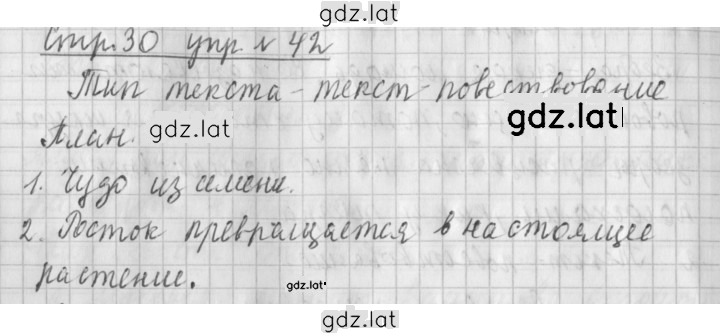 gdz.lat
Стр. 30 упр № 42
Тип текста - текст-повествование
gdz.lat
План.
gdz.lat
1. Чудо из семени.
2. Росток превращается в настоящее
растение.
gdz.lat
gdz.lat